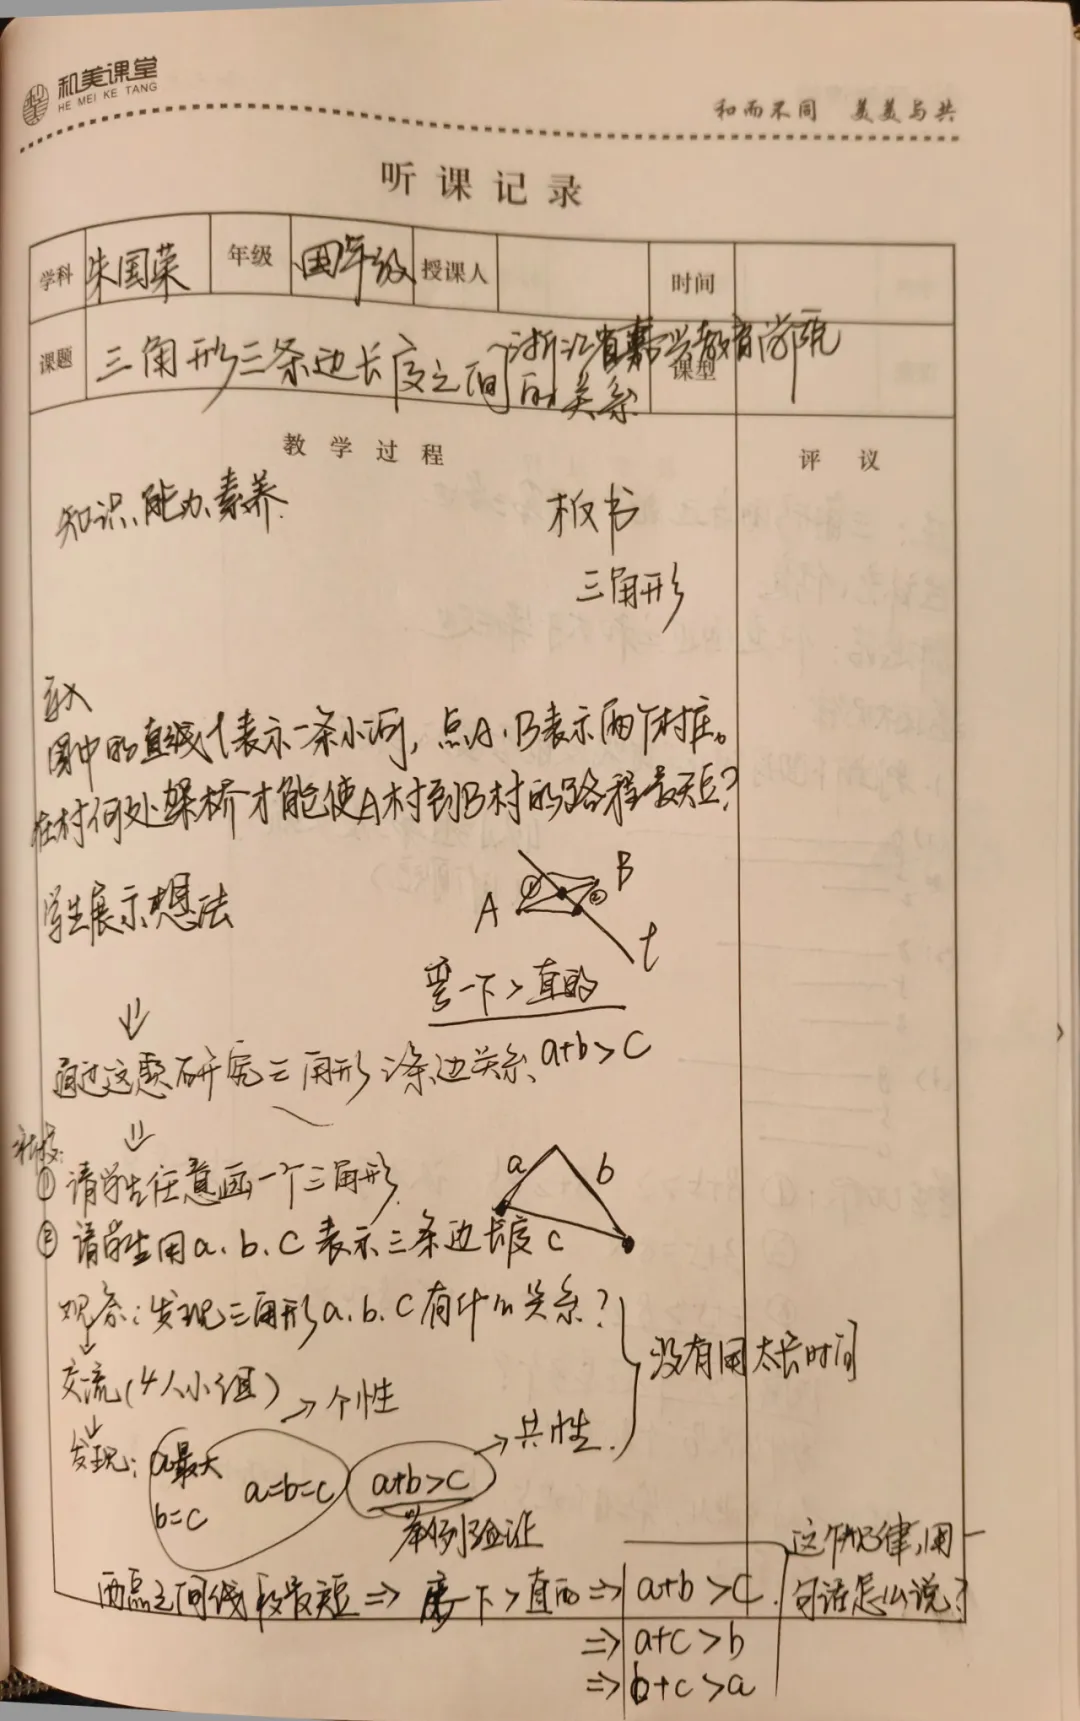 和美课堂
HE MEI KE TANG
和而不同 美美与共
听课记录
学科 朱国荣 年级 四年级 授课人 时间
课题 三角形三条边长度之间的关系 课型
浙江省嘉兴教育学院
教学过程 评议
知识、能力、素养. 板书
三角形
图中的直线l表示一条小河，点A、B表示两个村庄。
在村何处架桥才能使A村到B村的路程最短?
学生展示想法
A B
l
弯一下>直的
通过这题研究三角形 边关系 a+b>c
①请学生任意画一个三角形.
②请学生用a、b、c表示三条边长度
a b
c
观察:发现三角形a、b、c有什么关系?
没有用太长时间
交流(4人小组)
→个性
→共性.
发现: a最大 a=b=c a+b>c
b=c
举例验证
两点之间线段最短⇒ 弯一下>直的⇒ a+b>c.
⇒ a+c>b
⇒ b+c>a
这个规律,用一
句话怎么说?